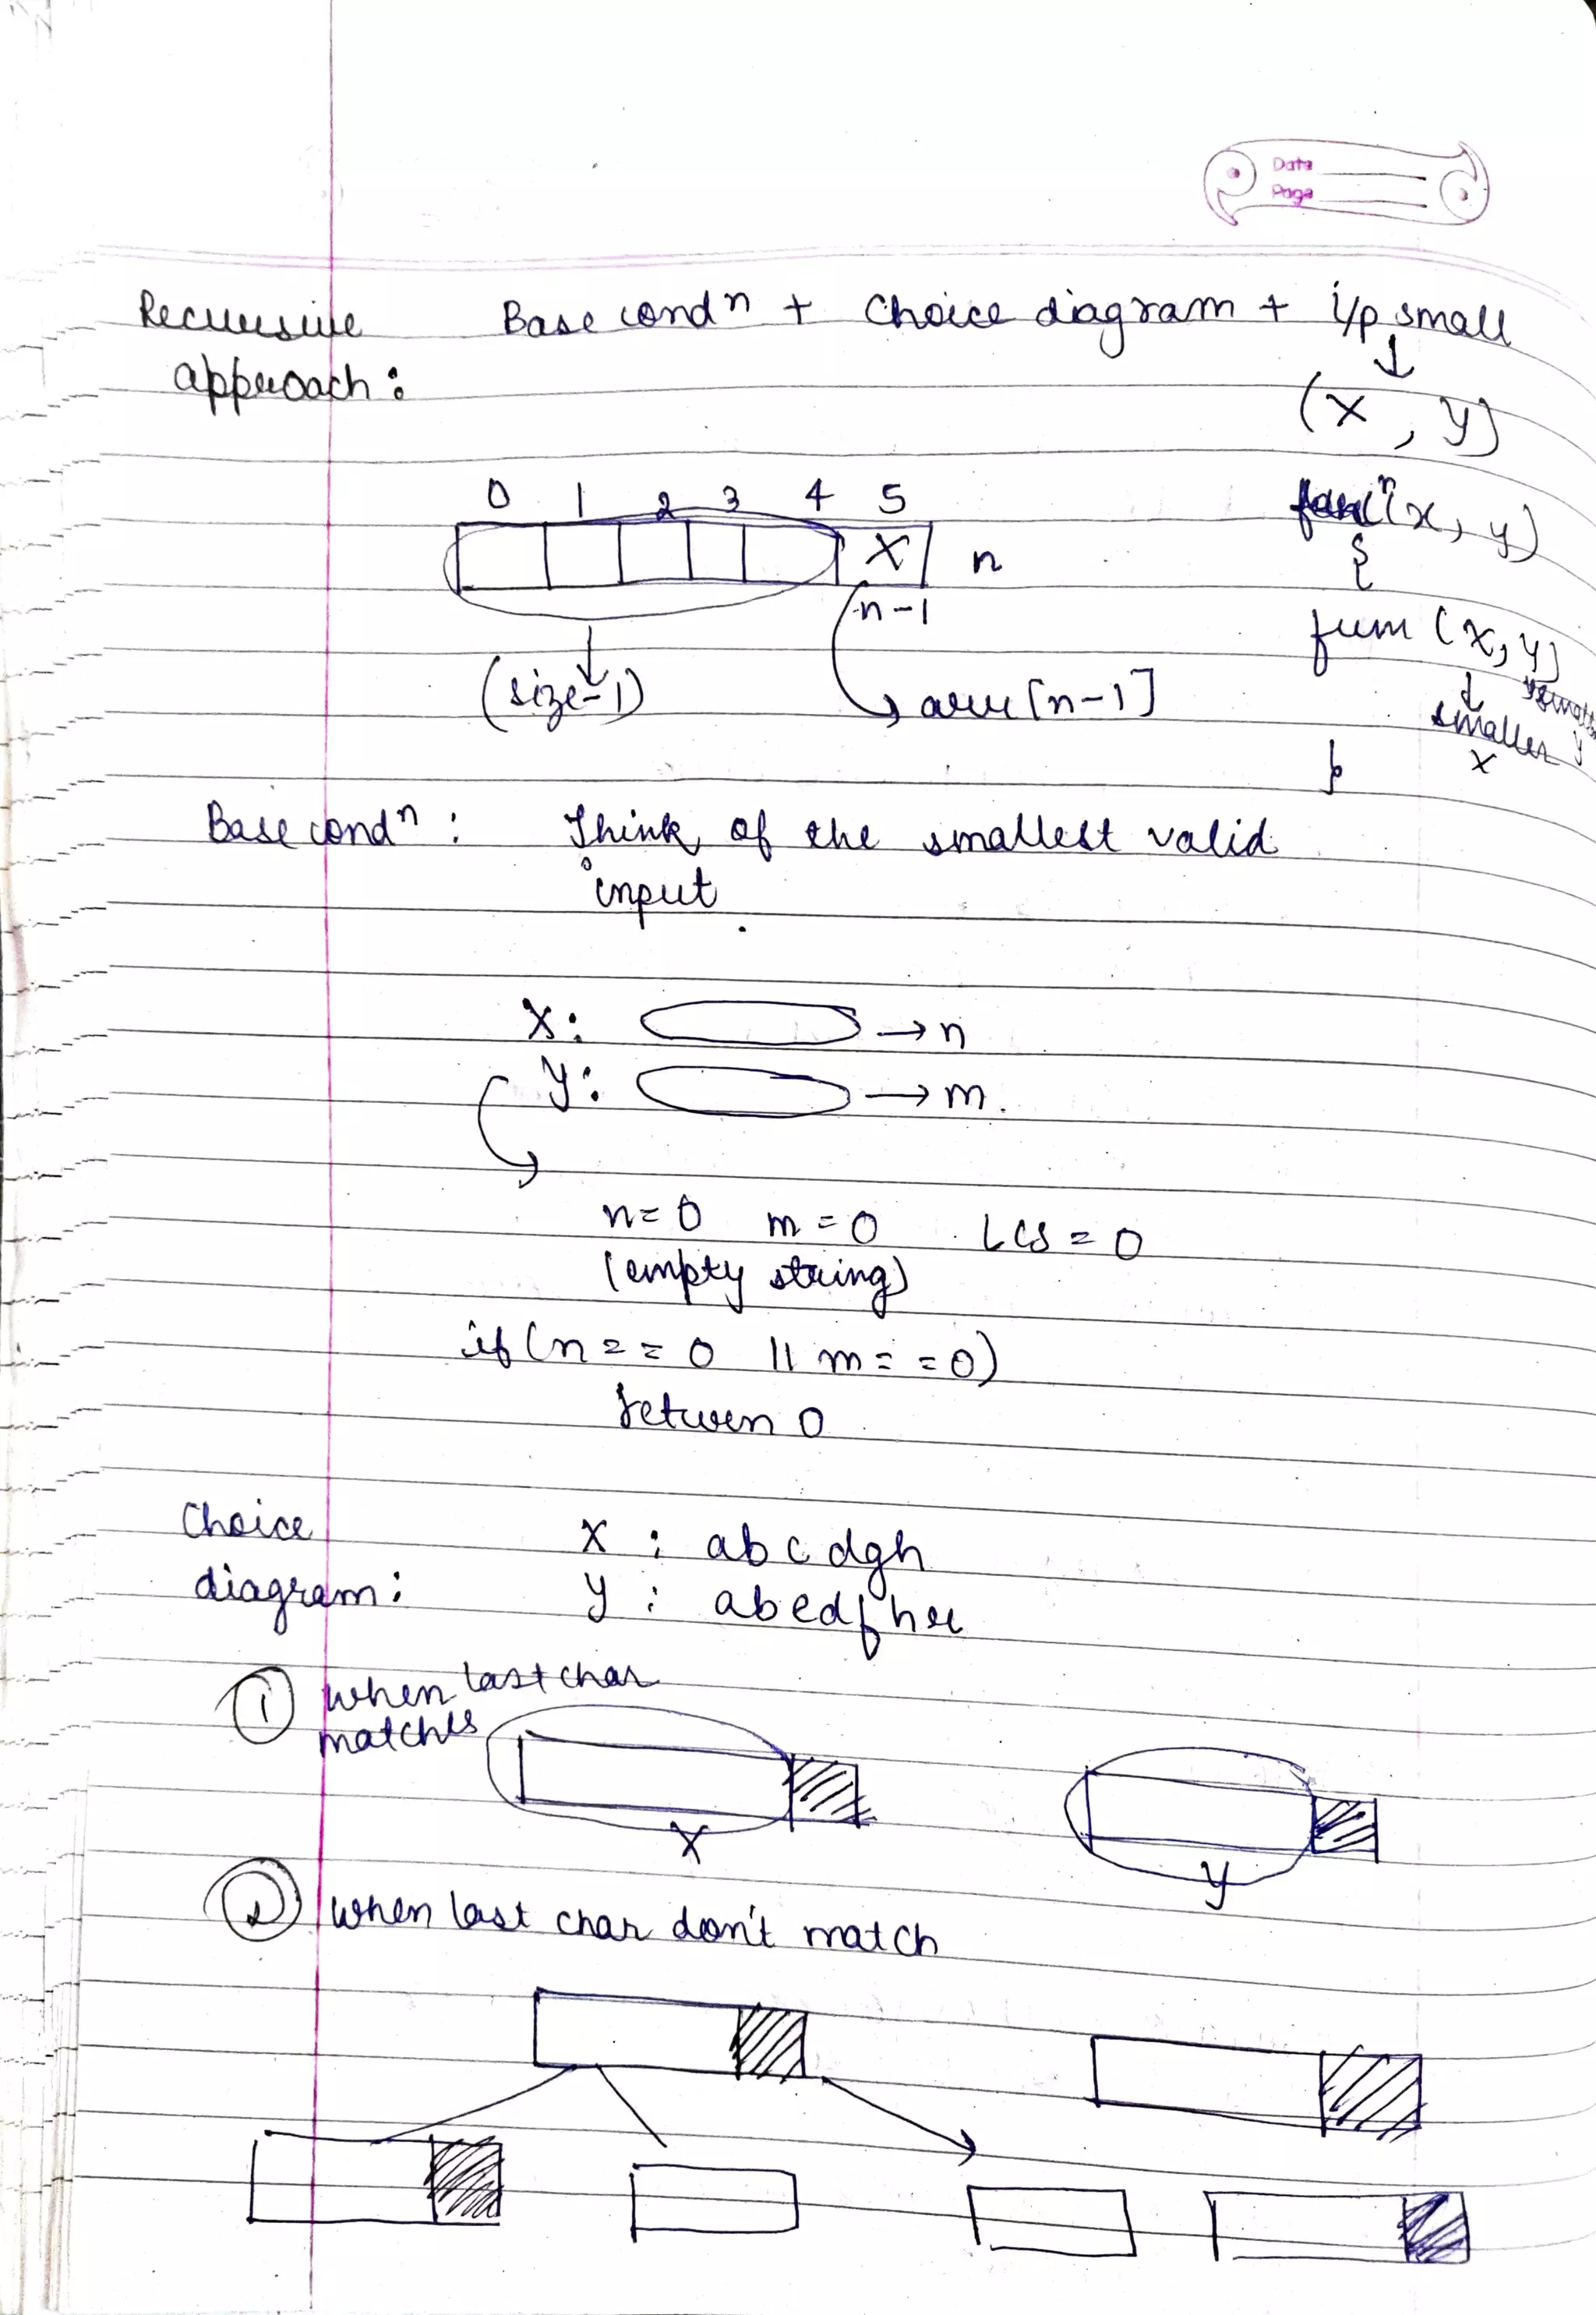 Data
Page
Recursive Base condn + Choice diagram + i/p small
approach:
(X, Y)
0 1 2 3 4 5
X n
n-1
(x, y)
{
(size-1)
arr[n-1]
(X, Y)
smaller
X
}
Base condn: Think of the smallest valid
input
X: → n
Y: → m.
n=0 m=0 LCS=0
(empty string)
if (n==0 || m==0)
return 0
Choice X : abcdgh
diagram: Y : abedfhr
① when last char
matches
X Y
② when last char don't match